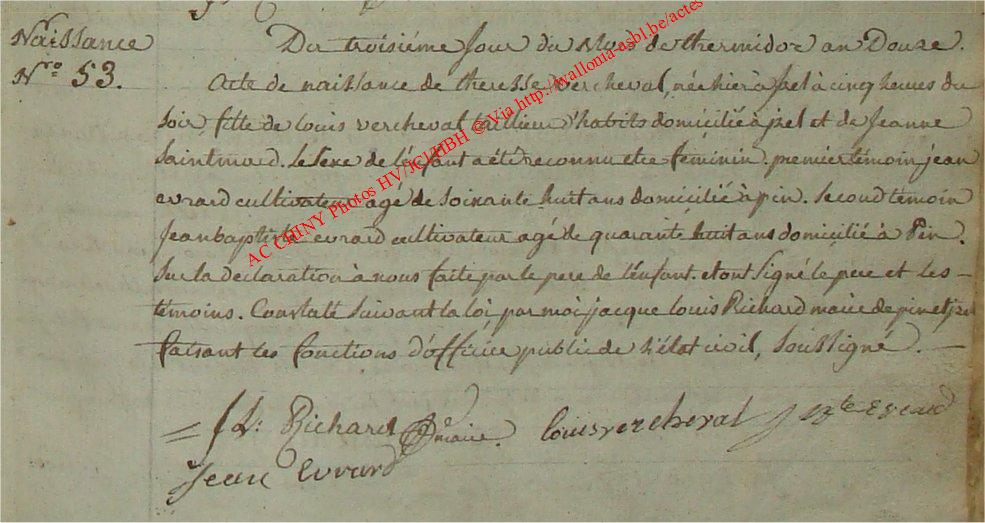 Naissance
Nro 53.
Du troisiéme jour du Mois de thermidor an Douze.
Acte de naissance de theresse vercheval, née hier à jzel à cinq heures du
soir, fille de louis vercheval taillieur d'habits domicilié à jzel et de Jeanne
Saintmard. le sexe de l'enfant a été reconnu etre feminin. premier témoin jean
evrard cultivateur agé de soixante huit ans domicilié à pin. second temoin
Jean baptiste evrard cultivateur agé de quarante huit ans domicilié à Pin.
Sur la declaration à nous faite par le pere de l'enfant. et ont signé le pere et les -
témoins. Constaté suivant la loi par moi jacque louis Richard maire de pin et jzel
faisant les fonctions d'officier public de l'état civil, soussigné. -
Richard maire. louis vercheval Evrard
Jean Evrard
AC CHINY Photos HV/JCI/HBH @ Via http://wallonia-asbl.be/actes